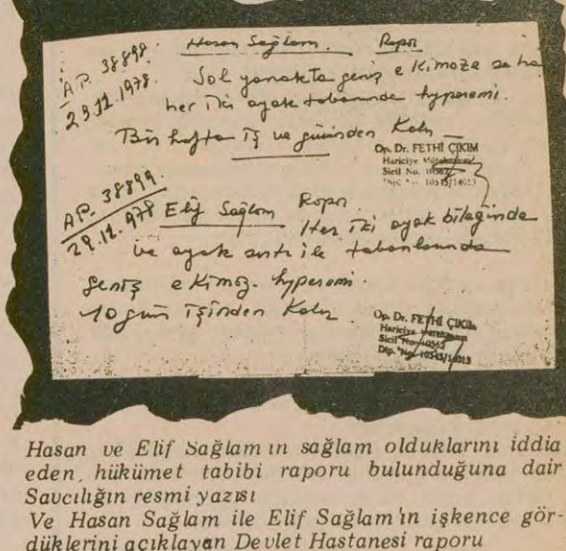 A.P. 38898.
29.12.1978.
Hasan Sağlam. Rapor
Sol yanakta geniş ekimoze saha
her iki ayak tabanında hyperemi.
Bir hafta iş ve gücünden kalır
Op. Dr. FETHİ ÇIKIM
Hariciye Mütehassısı
Sicil No. 10562
Dip. No. 10345/14013
AP. 38899.
29.12.978 Elif Sağlam Rapor
Her iki ayak bileğinde
ve ayak sırtı ile tabanlarında
geniş ekimoz. hyperemi.
10 gün işinden kalır
Op. Dr. FETHİ ÇIKIM
Hariciye Mütehassısı
Sicil No. 10562
Dip. No. 10345/14013
Hasan ve Elif Sağlam ın sağlam olduklarını iddia
eden, hükümet tabibi raporu bulunduğuna dair
Savcılığın resmi yazısı
Ve Hasan Sağlam ile Elif Sağlam'ın işkence gör-
düklerini açıklayan Devlet Hastanesi raporu